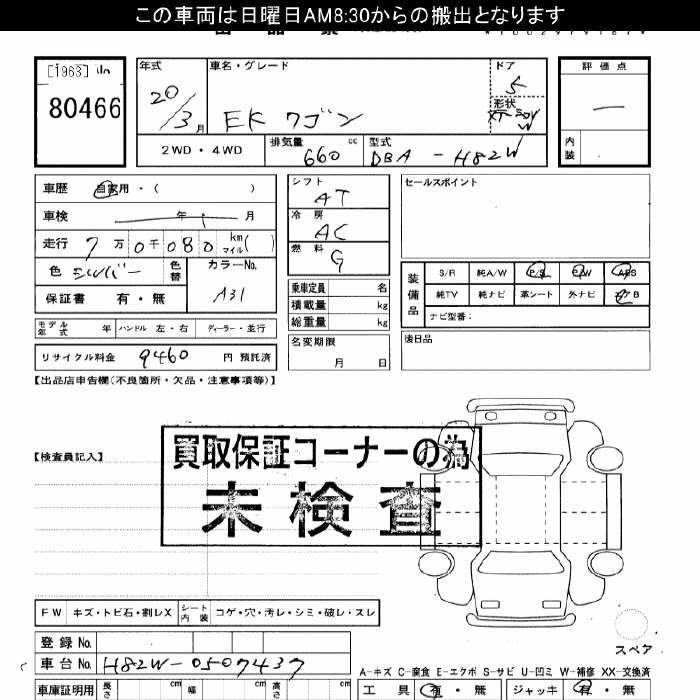 この車両は日曜日AM8:30からの搬出となります
[1963]
80466
年式
20/3月
車名・グレード
EK ワゴン
ドア
5
形状
評価点
内装
2WD・4WD
排気量
660 cc
型式
DBA-H82W
車歴 自家用・( )
車検 年 月
走行 7万0千080 km マイル( )
色 シルバー
色替
カラーNo.
A31
保証書 有・無
モデル年式 年
ハンドル 左・右
ディーラー・並行
リサイクル料金 9460 円 預託済
シフト
AT
冷房
AC
燃料
G
乗車定員 名
積載量 kg
総重量 kg
名変期限
月 日
セールスポイント
装備品
S/R 純A/W P/S P/W ABS
純TV 純ナビ 革シート 外ナビ エアB
ナビ型番:
後日品
【出品店申告欄(不良箇所・欠品・注意事項等)】
【検査員記入】
買取保証コーナーの為
未検査
FW キズ・トビ石・割レX
シート内装 コゲ・穴・汚レ・シミ・破レ・スレ
スペア
登録No.
車台No. H82W-0507437
A-キズ C-腐食 E-エクボ S-サビ U-凹ミ W-補修 XX-交換済
車庫証明用 長さ cm 幅 cm 高さ cm
工具 有・無 ジャッキ 有・無